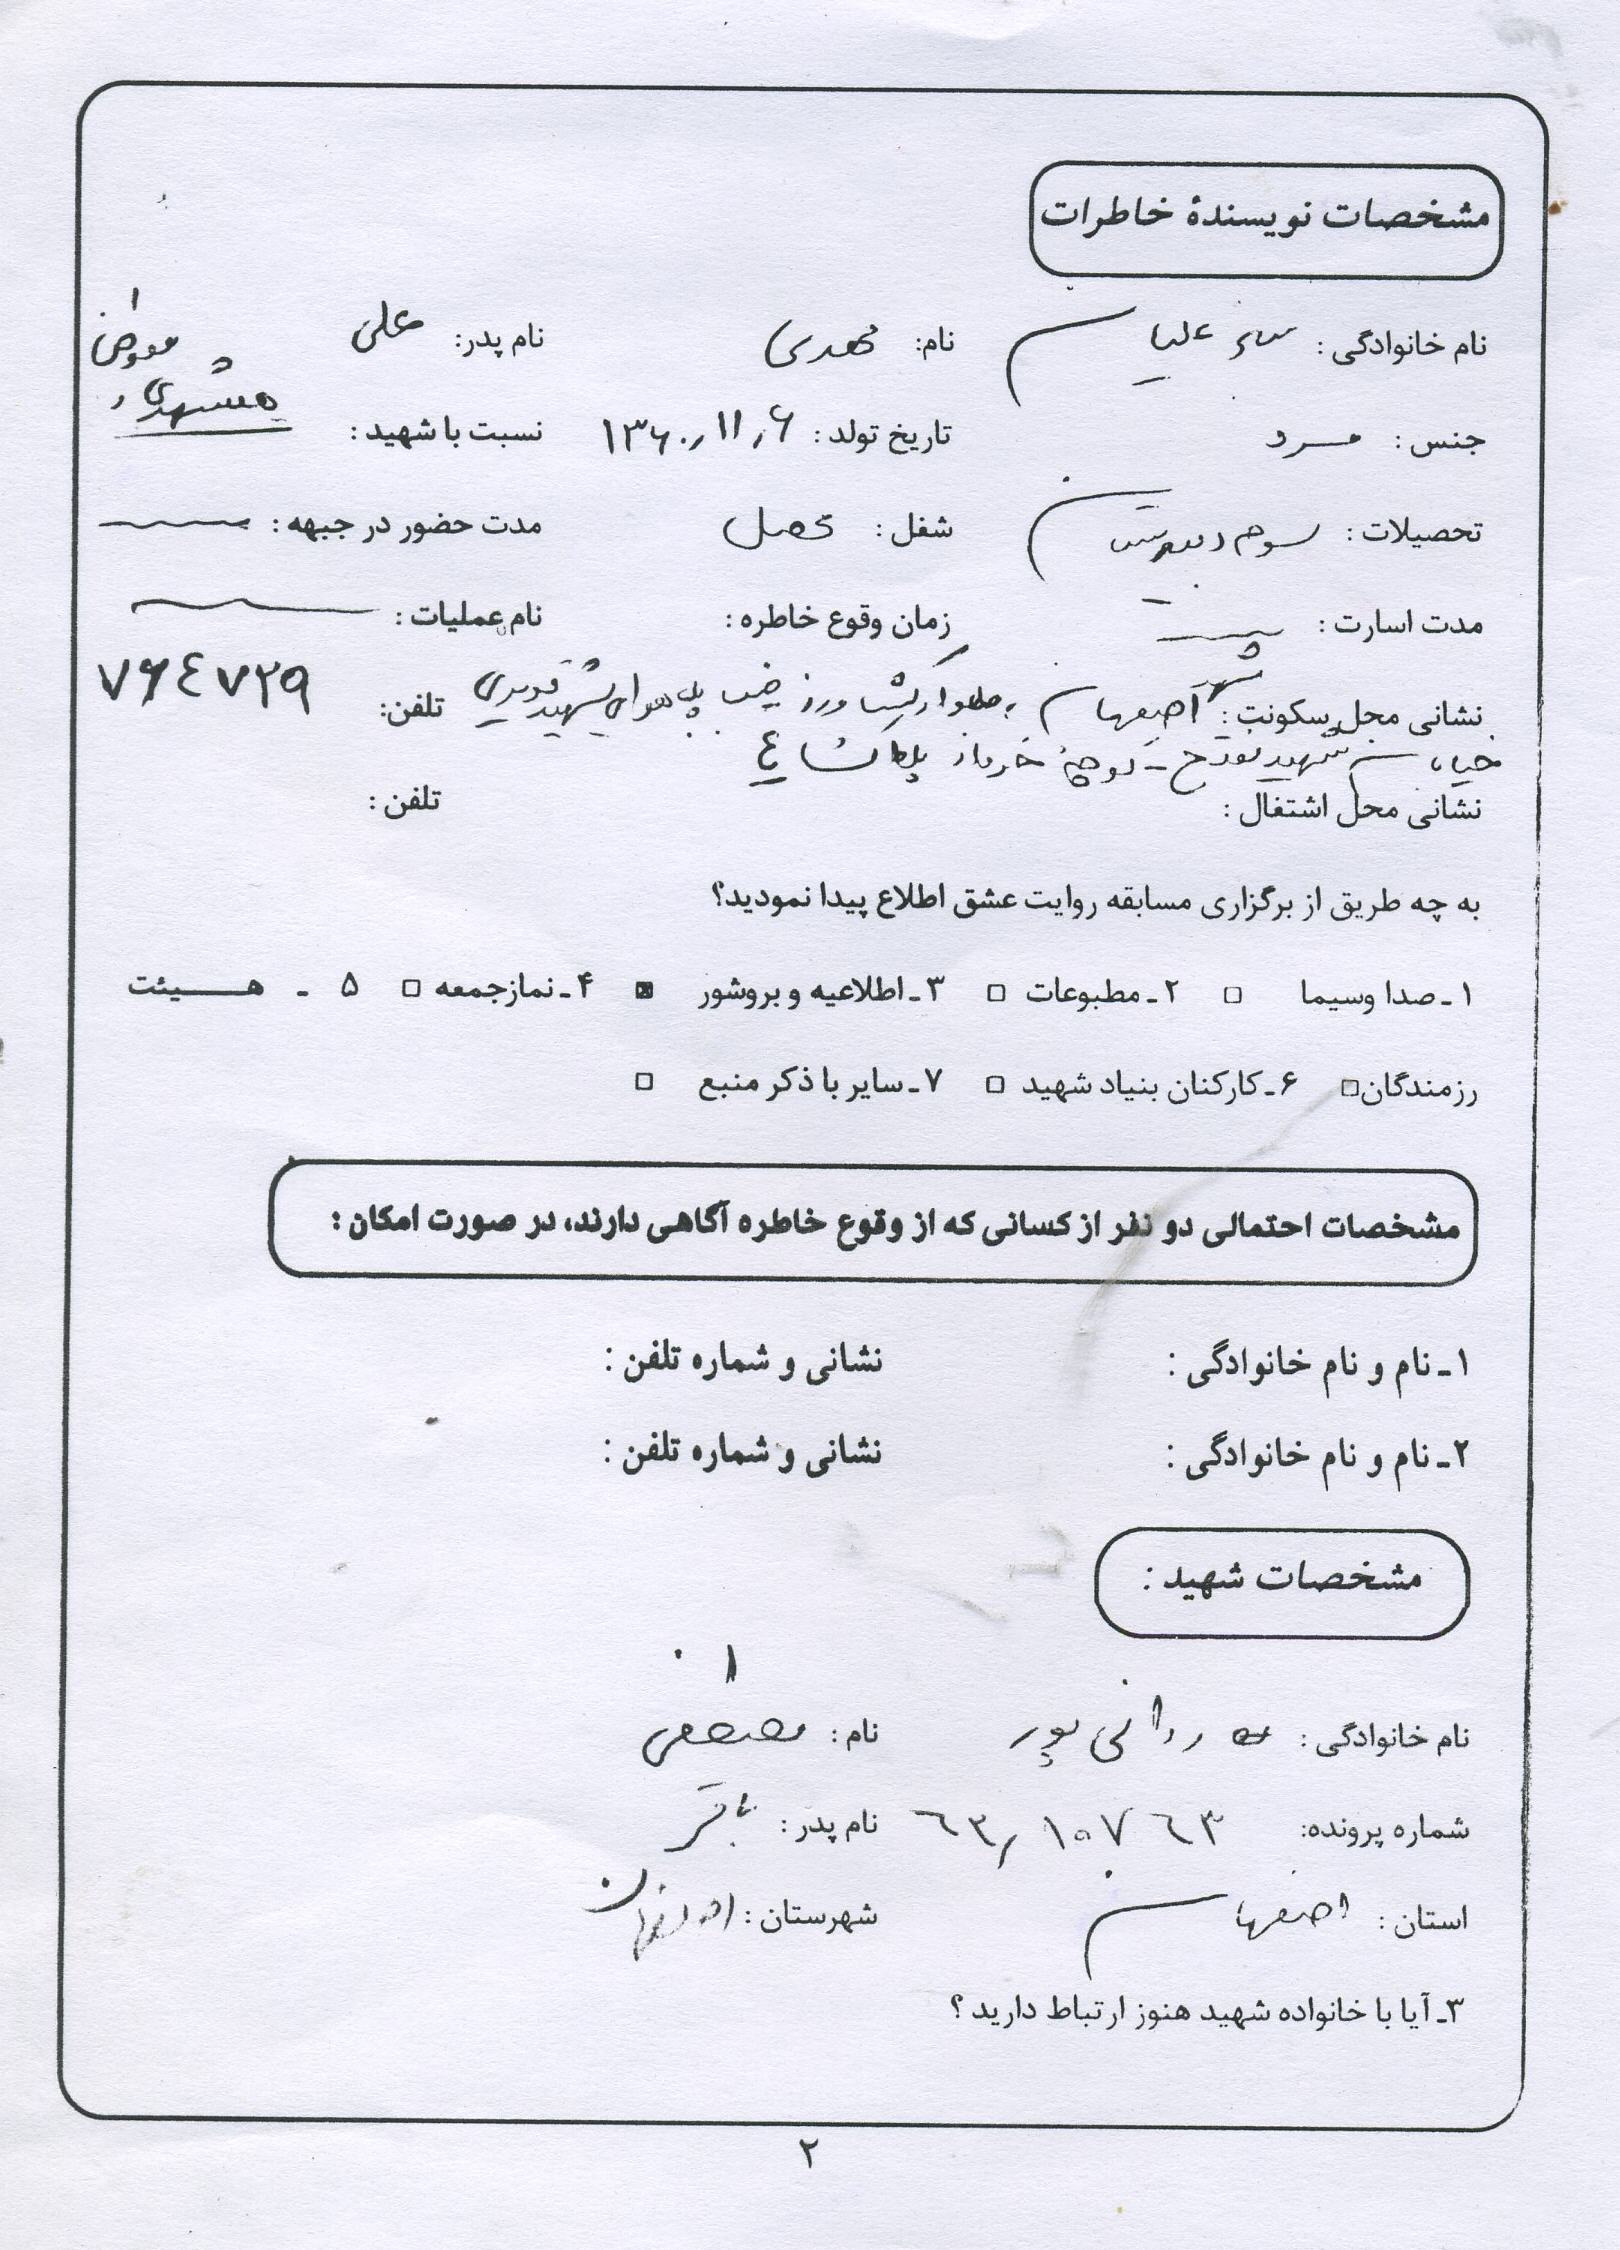 مشخصات نویسندهٔ خاطرات
نام خانوادگی : نام: مهدی نام پدر: علی
جنس : مرد تاریخ تولد : ۱۳۶۰٫۱۱٫۶ نسبت با شهید : همشهری
تحصیلات : سوم دبیرستان شغل : محصل مدت حضور در جبهه :
مدت اسارت : زمان وقوع خاطره : نام عملیات :
نشانی محل سکونت : اصفهان کشاورز پل هوایی شهید تلفن: ۷۶٤۷۲۹
خیابان شهید کوچهٔ پلاک ٤
نشانی محل اشتغال : تلفن :
به چه طریق از برگزاری مسابقه روایت عشق اطلاع پیدا نمودید؟
۱ـ صدا وسیما □ ۲ـ مطبوعات □ ۳ـ اطلاعیه و بروشور ■ ۴ـ نمازجمعه □ ۵ ـ هـــیئت
رزمندگان□ ۶ـ کارکنان بنیاد شهید □ ۷ـ سایر با ذکر منبع □
مشخصات احتمالی دو نفر از کسانی که از وقوع خاطره آگاهی دارند، در صورت امکان :
۱ـ نام و نام خانوادگی : نشانی و شماره تلفن :
۲ـ نام و نام خانوادگی : نشانی و شماره تلفن :
مشخصات شهید :
نام خانوادگی : ردانی پور نام : مصطفی
شماره پرونده: ٦٣٫١٠٧٦٣ نام پدر : باقر
استان : اصفهان شهرستان : اصفهان
۳ـ آیا با خانواده شهید هنوز ارتباط دارید ؟
۲